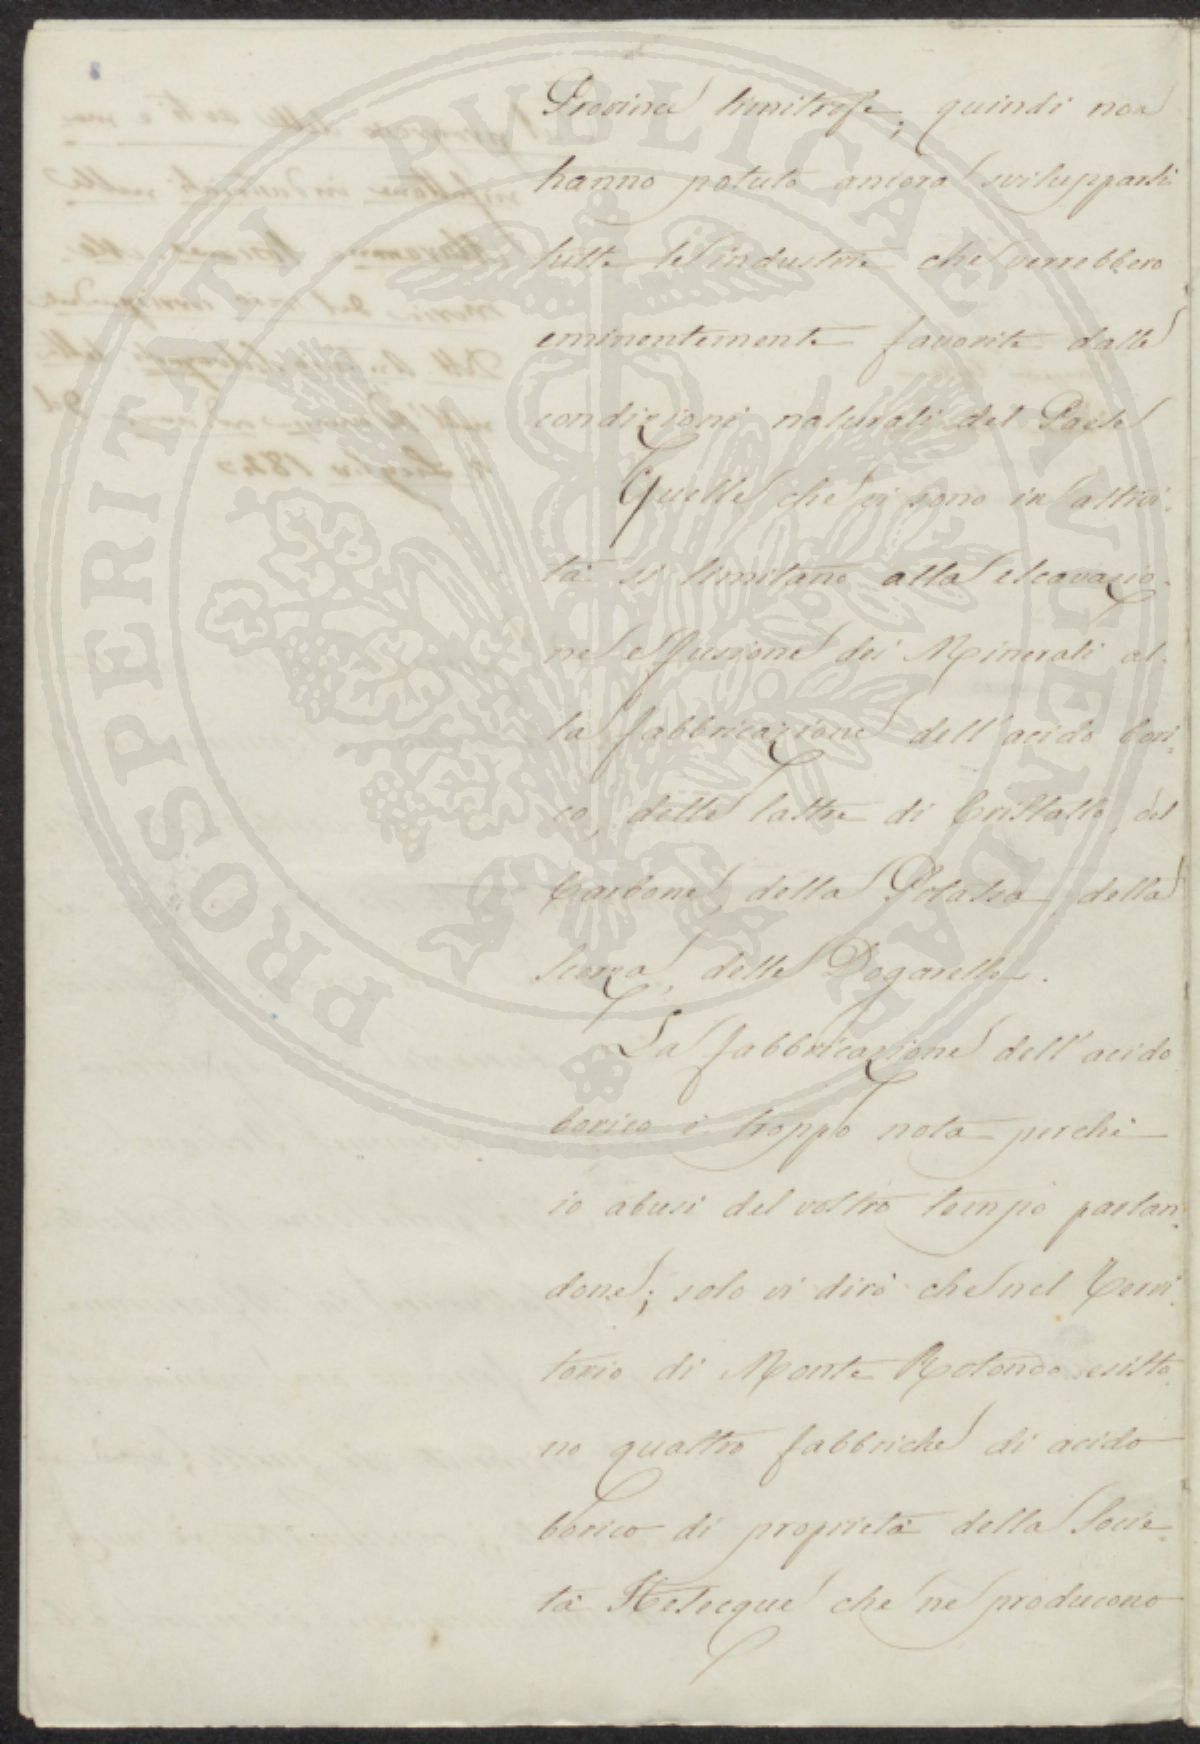 Provincie limitrofe; quindi non
hanno potuto ancora svilupparsi
tutte le industrie che verrebbero
eminentemente favorite dalle
condizioni naturali del Paese
Quelle che vi sono in attivi-
tà si limitano alla escavazio-
ne e fusione dei Minerali al-
la fabbricazione dell'acido bori-
co, delle lastre di Cristallo, del
Carbone, della Potassa, della
scorza, delle Dogarelle.
La fabbricazione dell'acido
borico è troppo nota perchè
io abusi del vostro tempo parlan-
done; solo vi dirò che nel Terri-
torio di Monte Rotondo esisto-
no quattro fabbriche di acido
borico di proprietà della Socie-
tà che ne producono
PROSPERITATI PVBLICAE AVGENDAE